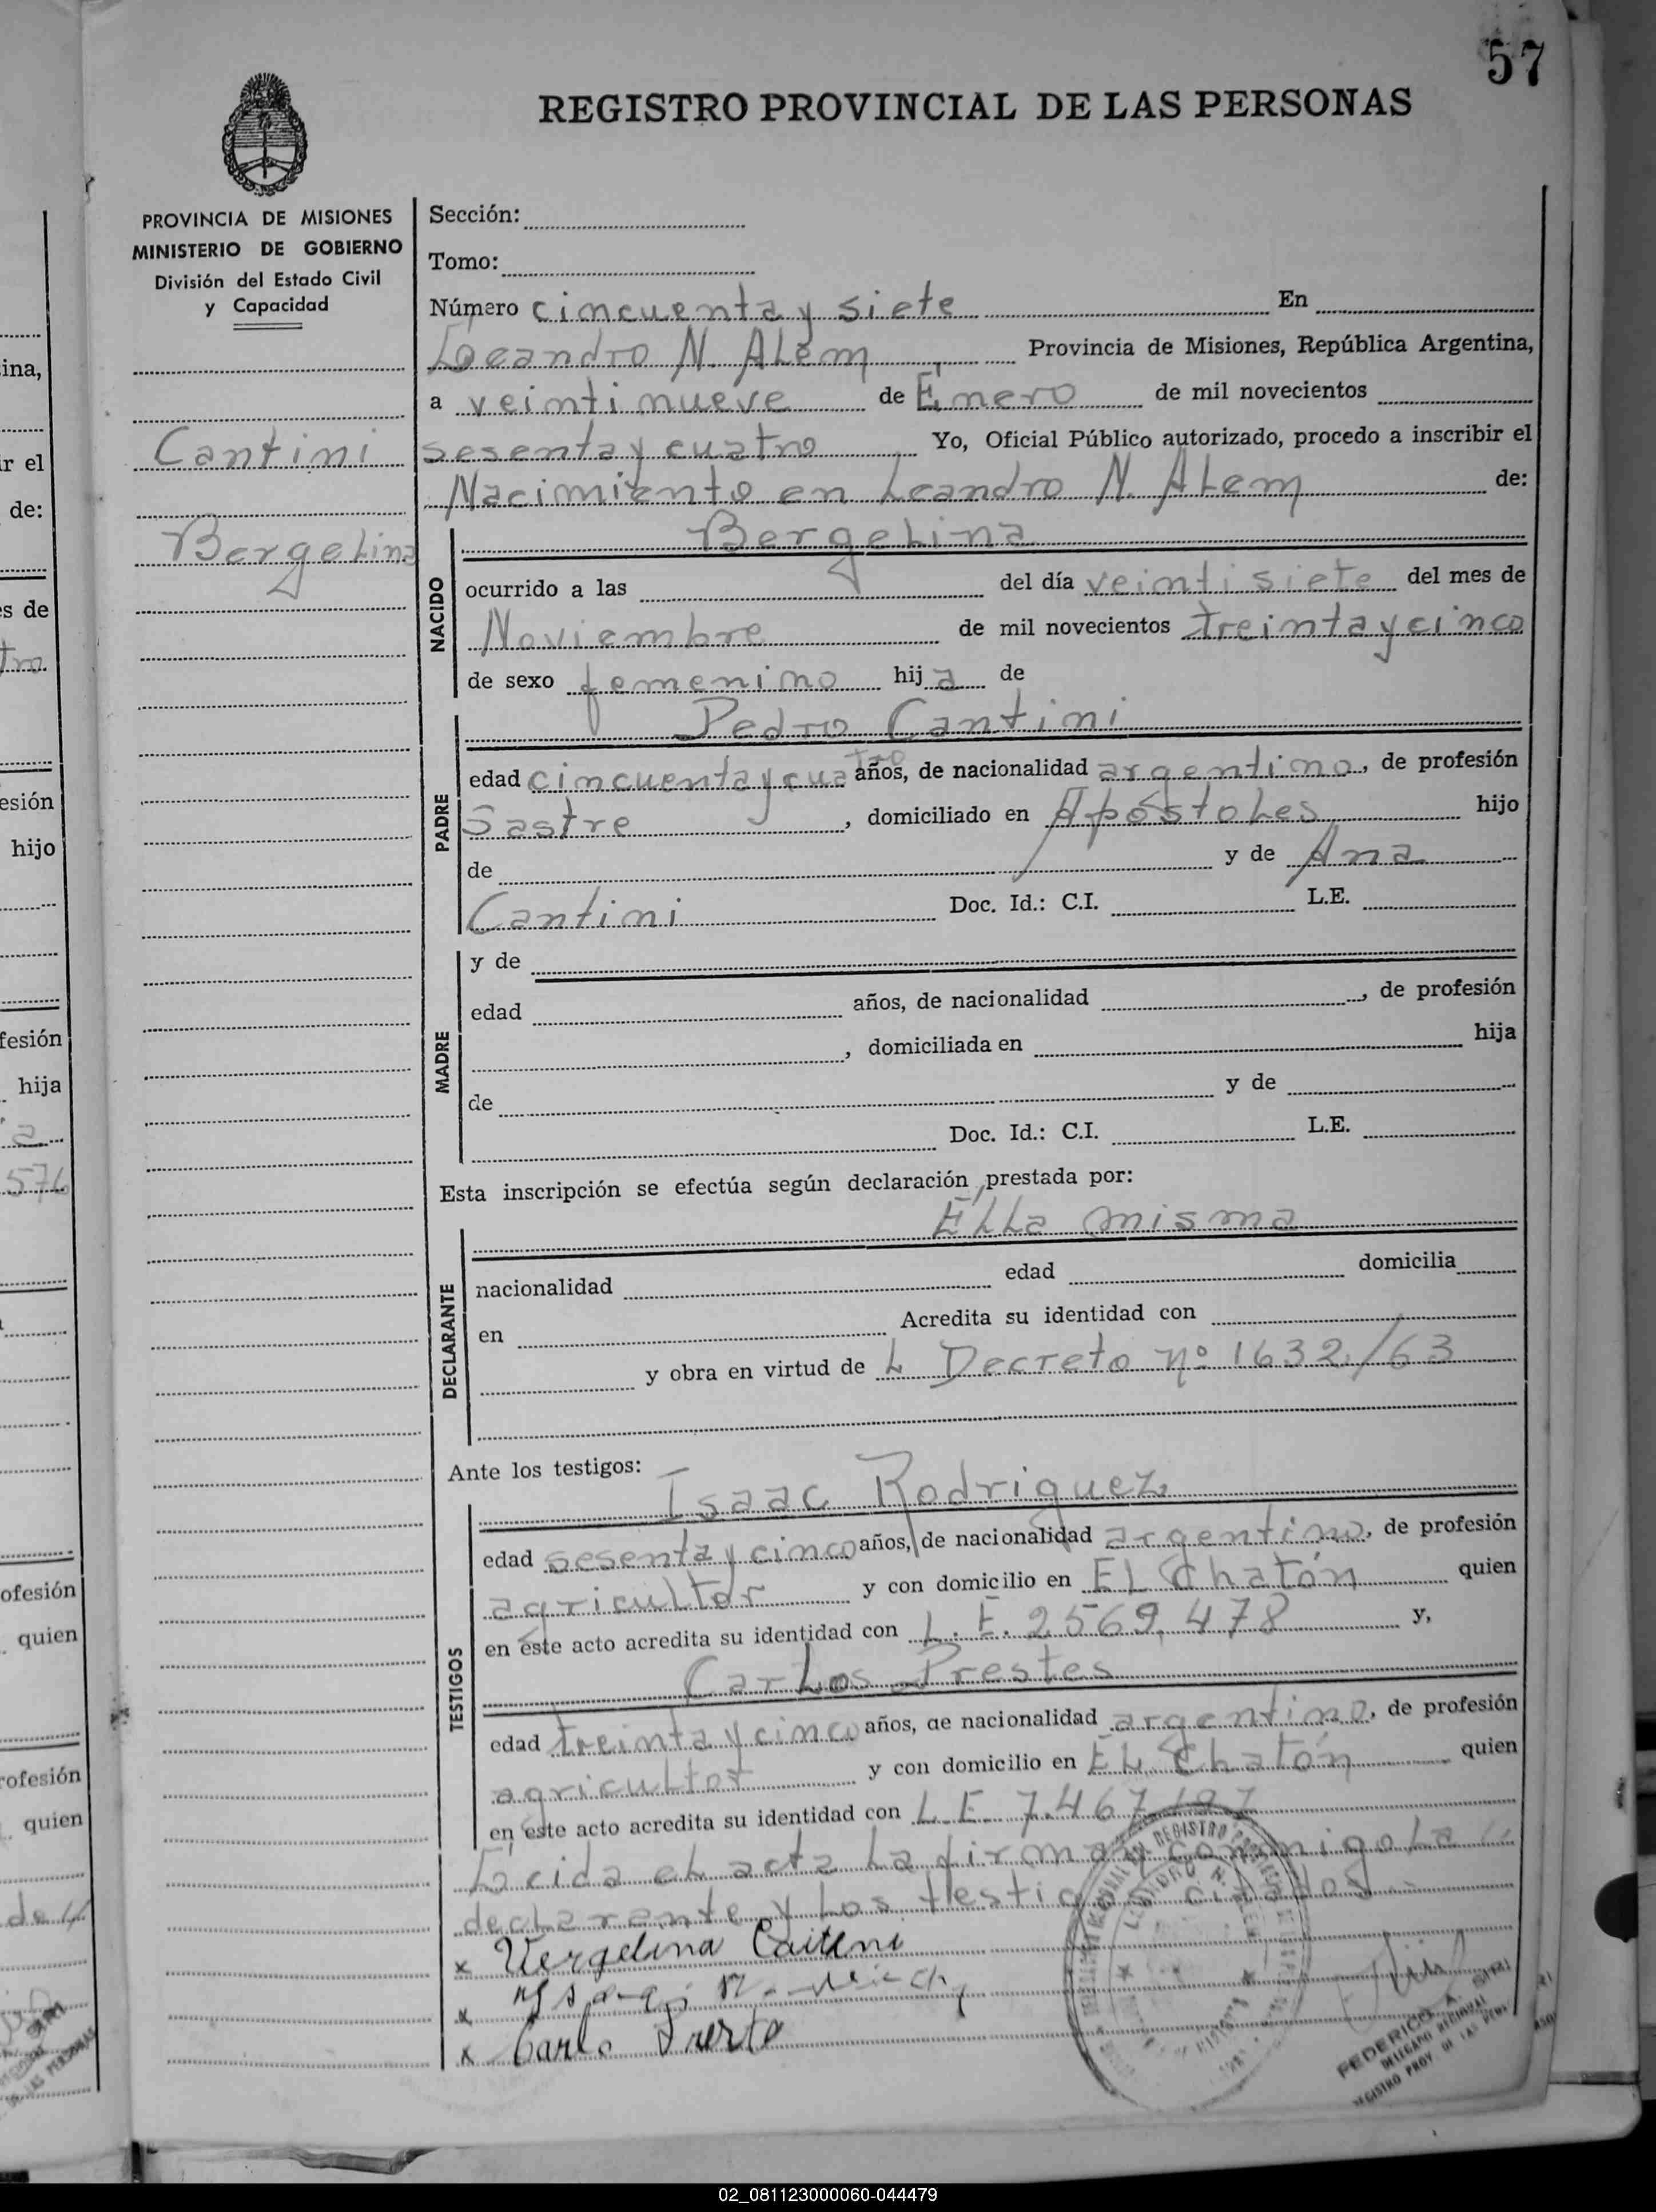 57
REGISTRO PROVINCIAL DE LAS PERSONAS
PROVINCIA DE MISIONES
MINISTERIO DE GOBIERNO
División del Estado Civil
y Capacidad
Cantini
Bergelina
Sección:
Tomo:
Número cincuenta y siete En
Leandro N. Alem Provincia de Misiones, República Argentina,
a veintinueve de Enero de mil novecientos
sesenta y cuatro Yo, Oficial Público autorizado, procedo a inscribir el
Nacimiento en Leandro N. Alem de:
NACIDO
Bergelina
ocurrido a las del día veintisiete del mes de
Noviembre de mil novecientos treinta y cinco
de sexo femenino hija de
PADRE
Pedro Cantini
edad cincuenta y cuatro años, de nacionalidad argentino, de profesión
Sastre, domiciliado en Apóstoles hijo
de y de Ana
Cantini Doc. Id.: C.I. L.E.
MADRE
y de
edad años, de nacionalidad , de profesión
, domiciliada en hija
de y de
Doc. Id.: C.I. L.E.
Esta inscripción se efectúa según declaración prestada por:
DECLARANTE
Ella misma
nacionalidad edad domicilia
en Acredita su identidad con
y obra en virtud de L Decreto nº 1632/63
Ante los testigos:
TESTIGOS
Isaac Rodriguez
edad sesenta y cinco años, de nacionalidad argentino, de profesión
agricultor y con domicilio en El Chatón quien
en este acto acredita su identidad con L.E. 2569.478 y,
Carlos Prestes
edad treinta y cinco años, de nacionalidad argentino, de profesión
agricultor y con domicilio en El Chatón quien
en este acto acredita su identidad con L.E. 7.467.197
Leida el acta la firman conmigo la
declarante y los testigos citados
x Vergelina
x
x Carlo
FEDERICO A.
DELEGADO REGIONAL
REGISTRO PROV. DE LAS PERS.
ina,
r el
de:
s de
tro
esión
hijo
fesión
hija
a
576
ofesión
quien
rofesión
quien
de
02_081123000060-044479